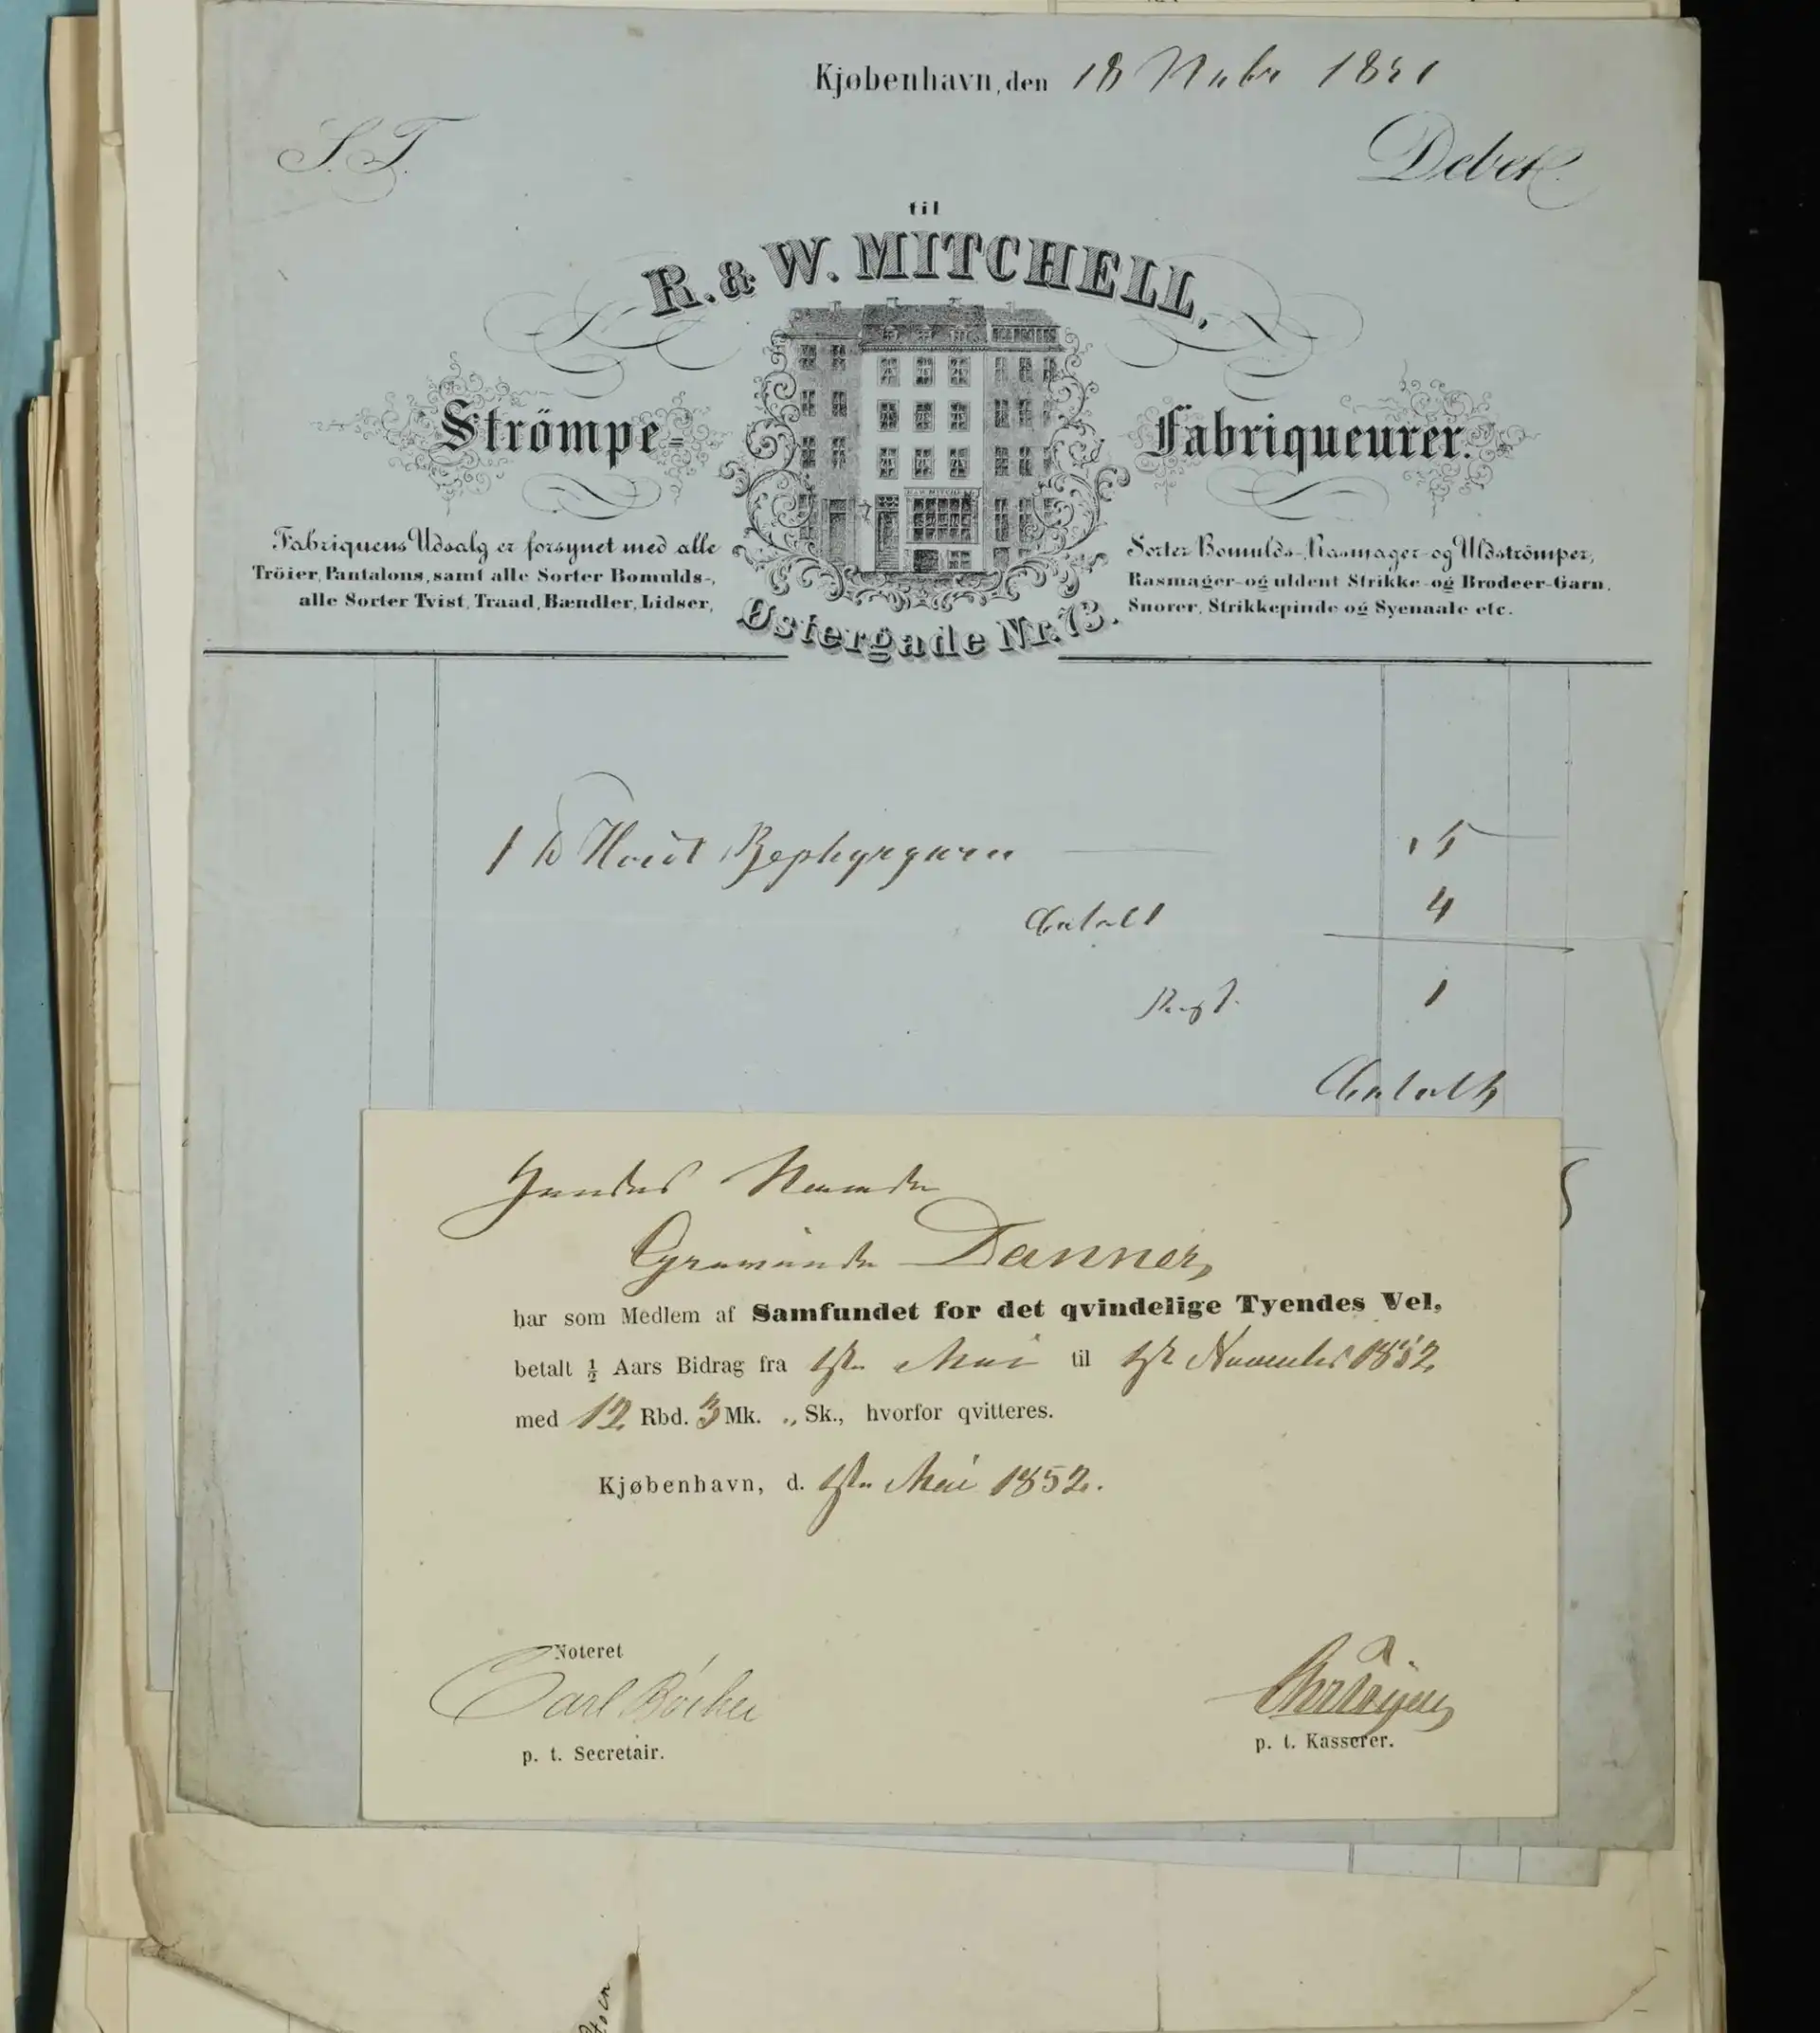 Kjøbenhavn, den 18 Nvbr 1851
S. T.
Debet
til
R. & W. MITCHELL,
Strömpe-Fabriqueurer.
R & W MITCHELL
Fabriquens Udsalg er forsynet med alle Sorter Bomulds-, Kasmager- og Uldströmper,
Tröier, Pantalons, samt alle Sorter Bomulds-, Kasmager- og uldent Strikke- og Brodeer-Garn,
alle Sorter Tvist, Traad, Bændler, Lidser, Snorer, Strikkepinde og Syenaale etc.
Østergade Nr. 73.
1 ℔ Hvidt Zephyrgarn 5
Betalt 4
Rest 1
Betalt
Hendes Naade
Grevinde Danner,
har som Medlem af Samfundet for det qvindelige Tyendes Vel,
betalt ½ Aars Bidrag fra 1ste Mai til 1ste November 1852
med 12 Rbd. 3 Mk. „ Sk., hvorfor qvitteres.
Kjøbenhavn, d. 1ste Mai 1852.
Noteret
Carl
p. t. Secretair.
p. t. Kasserer.